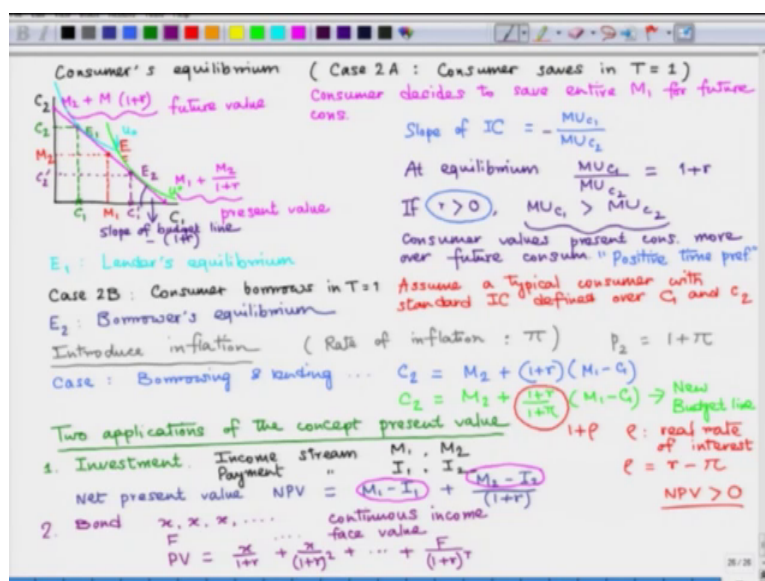 Consumer's equilibrium ( Case 2A : Consumer saves in T = 1 )
Consumer decides to save entire M₁ for future cons.
C₂ M₂ + M (1+r) future value
C₂ E₁ U₀
M₂ E
C₂' E₂ M₁ + M₂/(1+r)
U₀
C₁ M₁ C₁' C₁ present value
Slope of budget line
- (1+r)
Slope of IC = - MUc₁/MUc₂
At equilibrium MUc₁/MUc₂ = 1+r
If r > 0, MUc₁ > MUc₂
Consumer values present cons. more
over future consum. "Positive time pref"
E₁ : Lender's equilibrium
Case 2B : Consumer borrows in T=1
E₂ : Borrower's equilibrium
Assume a Typical consumer with
standard IC defined over C₁ and C₂
Introduce inflation ( Rate of inflation : π ) P₂ = 1+π
Case : Borrowing & lending ... C₂ = M₂ + (1+r) (M₁-C₁)
C₂ = M₂ + (1+r)/(1+π) (M₁-C₁) → New
Budget line
1+ρ ρ : real rate
of interest
ρ = r - π
Two applications of the concept present value
1. Investment. Income stream M₁, M₂
Payment " I₁, I₂
Net present value NPV = M₁-I₁ + (M₂-I₂)/(1+r)
NPV > 0
2. Bond x, x, x, .... continuous income
F .... face value
PV = x/(1+r) + x/(1+r)² + ... + F/(1+r)ᵀ
26 / 26